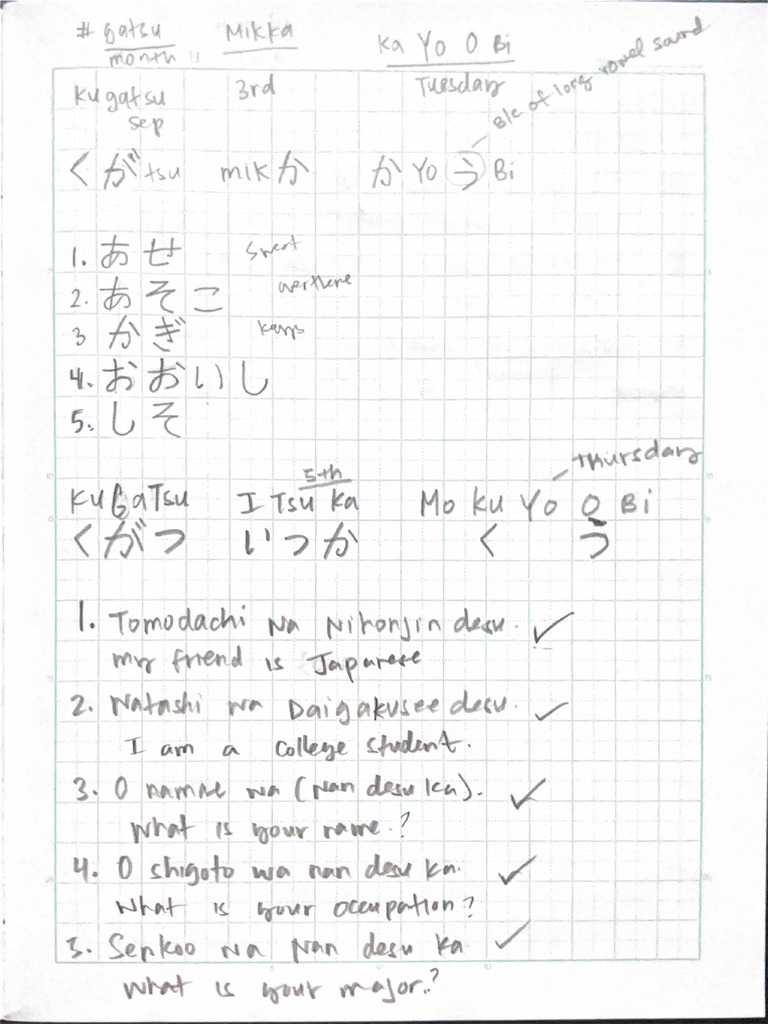 # gatsu Mikka Ka Yo O Bi
month
Kugatsu 3rd Tuesday
sep
B/c of long vowel sound
くがtsu mikか かYoうBi
1. あせ sweat
2. あそこ overthere
3 かぎ keys
4. おおいし
5. しそ
5th Thursday
KuGaTsu I Tsu Ka Mo Ku Yo O Bi
くがつ いつか く う
1. Tomodachi wa Nihonjin desu. ✓
my friend is Japanese
2. Watashi wa Daigakusee desu. ✓
I am a college student.
3. O namae wa (Nan desu ka). ✓
What is your name.?
4. O shigoto wa nan desu ka. ✓
What is your occupation?
5. Senkoo wa Nan desu ka ✓
What is your major.?